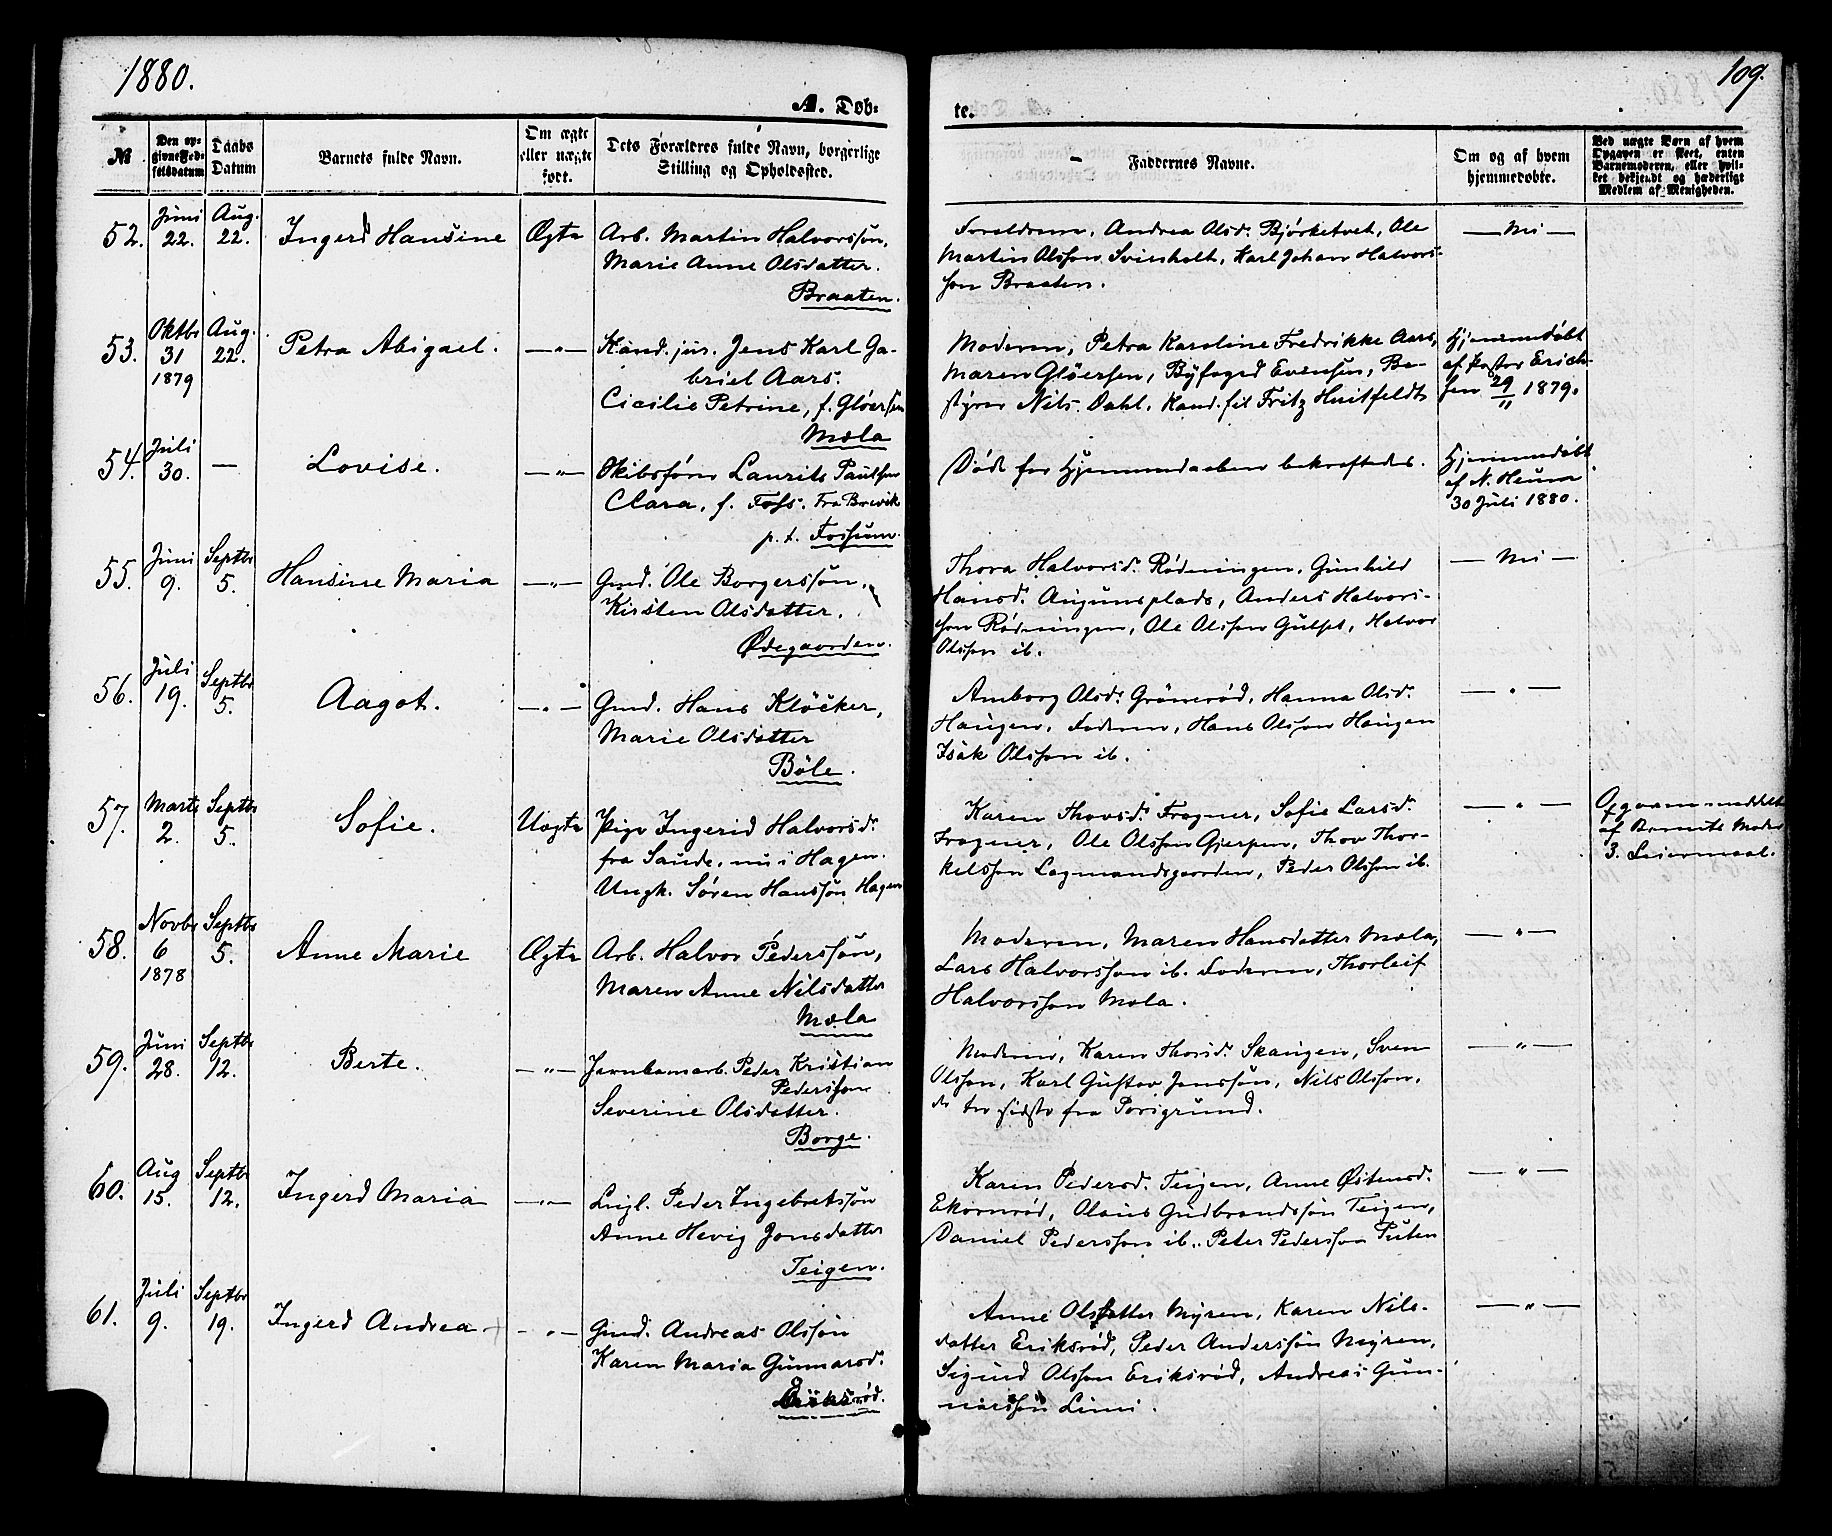 1880.
109.
A. Døb-
te.
№
Den op-
givne Fød-
selsdatum
Daabs
Datum
Barnets fulde Navn.
Om ægte
eller uægte
født.
Dets Forældres fulde Navn, borgerlige
Stilling og Opholdssted.
Faddernes Navne.
Om og af hvem
hjemmedøbte.
Ved uægte Børn af hvem
Opgaven er skeet, enten
Barnemoderen, eller hvil-
ket bekjendt og hæderligt
Medlem af Menigheden.
52.
Juni
22.
Aug.
22.
Ingerd Hansine
Ægte
Arb. Martin Halvorssøn,
Marie Anne Olsdatter.
Braaten.
Forældrene, Andrea Olsd. Bjørketvet, Ole
Martin Olssøn Svinholt, Karl Johan Halvors-
søn Braaten.
— Nei —
53.
Oktbr
31
1879
Aug.
22.
Petra Abigael.
— " —
Kand. jur. Jens Karl Ga-
briel Aars.
Cicilie Petrine, f. Gløersen
Mæla
Moderen, Petra Karoline Fredrikke Aars,
Maren Gløersen, Byfoged Evensen, Be-
styrer Nils Dahl, Kand. fil Fritz Huitfeldt
Hjemmedøbt
af Pastor Erich-
sen 29/11 1879.
54.
Juli
30.
—
Lovise.
— " —
Skibsfører Laurits Paulsen
Clara, f. Foss. Fra Brevik
p. t. Fossum.
Døde før Hjemmedaaben bekræftedes.
Hjemmedøbt
af N. Heum
30 Juli 1880.
55.
Juni
9.
Septbr
5.
Hansine Maria
— " —
Gmd. Ole Borgerssøn,
Kirsten Olsdatter.
Ødegaarden.
Thora Halvorsd. Rødningen, Gunhild
Hansd. Augunsplads, Anders Halvors-
søn Rødningen, Ole Olssøn Gulset, Halvor
Olssøn ib.
— Nei —
56.
Juli
19.
Septbr
5.
Aagot.
— " —
Gmd. Hans Kløcker,
Marie Olsdatter
Bøle.
Amborg Olsd. Grønerød, Hanna Olsd.
Haugen, Faderen, Hans Olssøn Haugen
Isak Olssøn ib.
— " —
57.
Marts
2.
Septbr
5.
Sofie.
Uægte
Pige Ingerid Halvorsd.
fra Saude, nu i Hagen.
Ungk. Søren Hanssøn Hagen
Karen Thovsd. Frogner, Sofie Larsd.
Frogner, Ole Olssøn Gjerpen, Thov Thor-
kelssøn Lagmandsgaarden, Peder Olssøn ib.
— " —
Opgaven meddelt
af Barnets Moder
3. Leiermaal.
58.
Novbr
6
1878
Septbr
5.
Anne Marie
Ægte
Arb. Halvor Pederssøn,
Maren Anne Nilsdatter
Mæla
Moderen, Maren Hansdatter Mæla,
Lars Halvorssøn ib. Faderen, Thorleif
Halvorssøn Mæla.
— " —
59.
Juni
28.
Septbr
12.
Berte.
— " —
Jernbanarb. Peder Kristian
Pederssøn
Severine Olsdatter.
Borge.
Moderen, Karen Thorsd. Skaugen, Sven
Olssøn, Karl Gustav Jenssøn, Nils Olssøn,
de tre sidste fra Porsgrund.
— " —
60.
Aug
15.
Septbr
12.
Ingerd Maria
— " —
Leigl. Peder Ingebretssøn
Anne Hevig Jonsdatter
Teigen.
Karen Pedersd. Teigen, Anne Østensd.
Ekornrød, Olaus Gudbrandssøn Teigen,
Daniel Pederssøn ib., Peter Pederssøn Puten
— " —
61.
Juli
9.
Septbr
19.
Ingerd Andrea
— " —
Gmd. Andreas Olssøn
Karen Maria Gunnarsd.
Eriksrød.
Anne Olsdatter Myren, Karen Nils-
datter Eriksrød, Peder Anderssøn Myren,
Sigurd Olssøn Eriksrød, Andreas Gun-
narssøn Limi.
— " —